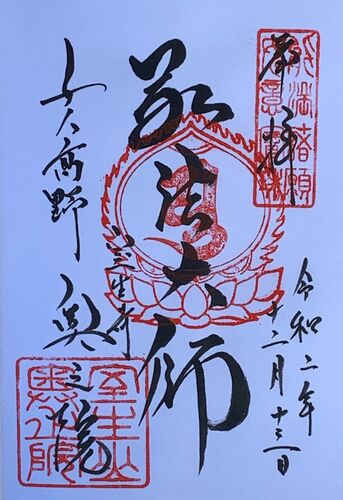 奉拝
能満諸願
如意宝珠
令和二年
十二月十三日
弘法大師
室生寺
女人高野
奥之院
室生山
奥之院